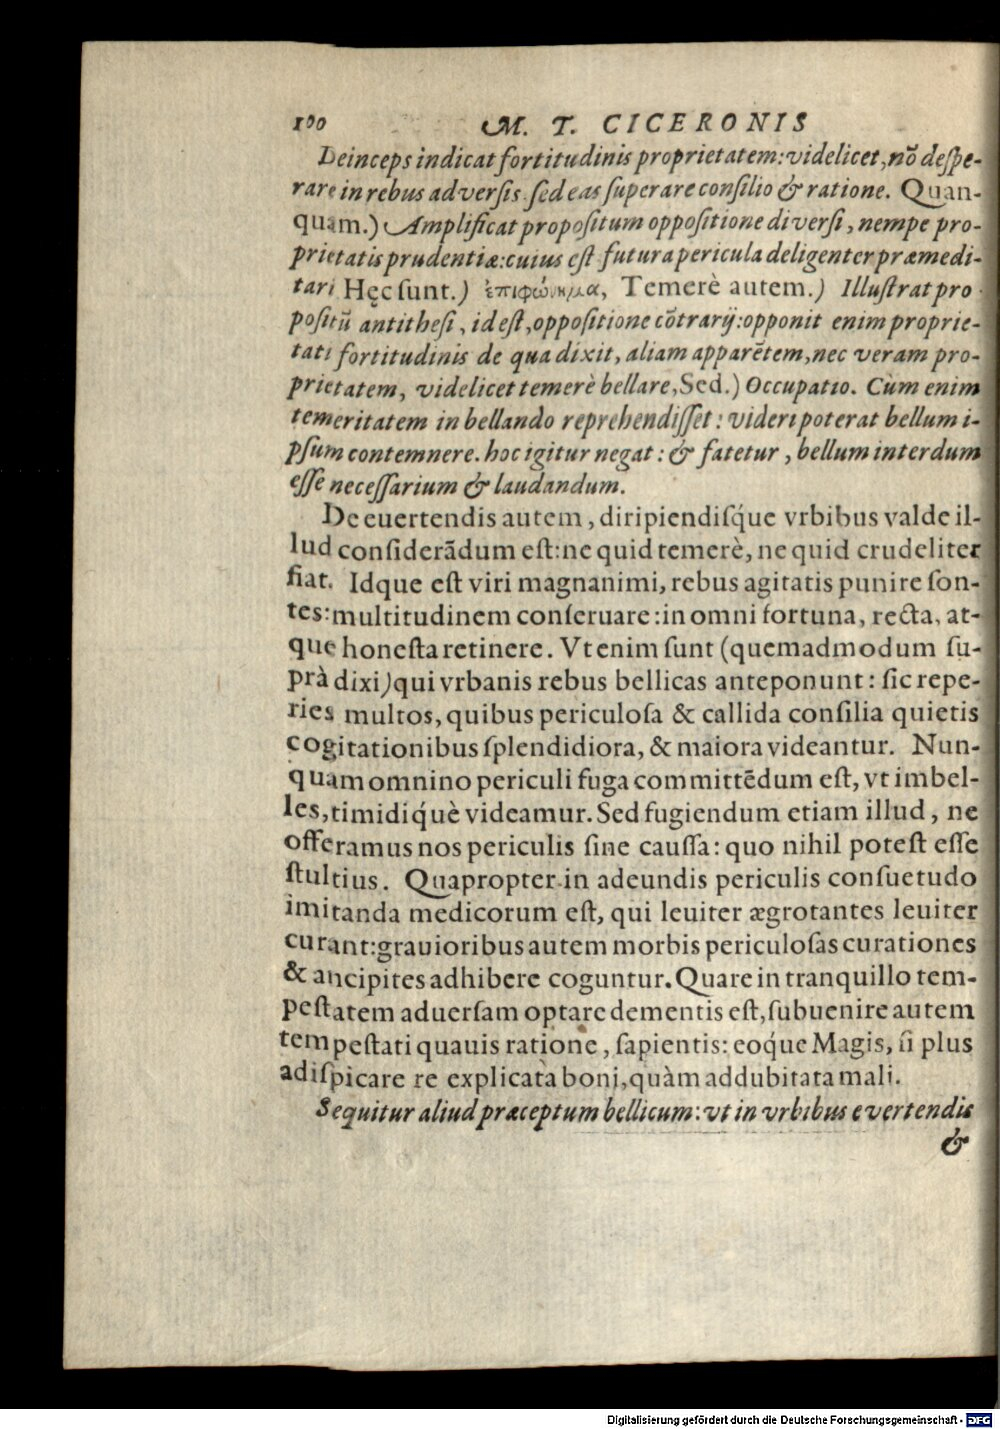 100 M. T. CICERONIS
Deinceps indicat fortitudinis proprietatem: videlicet, nõ despe-
rare in rebus adversis. sed eas superare consilio & ratione. Quan-
quam.) Amplificat propositum oppositione diversi, nempe pro-
prietatis prudentiæ: cuius est futura pericula deligenter præmedi-
tari Hęc sunt.) ἐπιφώνημα, Temerè autem.) Illustrat pro
positũ antithesi, id est, oppositione cõtrarij: opponit enim proprie-
tati fortitudinis de qua dixit, aliam apparẽtem, nec veram pro-
prietatem, videlicet temerè bellare, Sed.) Occupatio. Cùm enim
temeritatem in bellando reprehendisset: videri poterat bellum i-
psum contemnere. hoc igitur negat: & fatetur, bellum interdum
esse necessarium & laudandum.
De euertendis autem, diripiendisq́ue vrbibus valde il-
lud considerãdum est: ne quid temerè, ne quid crudeliter
fiat. Idque est viri magnanimi, rebus agitatis punire son-
tes: multitudinem conseruare: in omni fortuna, recta, at-
que honesta retinere. Vt enim sunt (quemadmodum su-
prà dixi) qui vrbanis rebus bellicas anteponunt: sic repe-
ries multos, quibus periculosa & callida consilia quietis
cogitationibus splendidiora, & maiora videantur. Nun-
quam omnino periculi fuga committẽdum est, vt imbel-
les, timidiq́uè videamur. Sed fugiendum etiam illud, ne
offeramus nos periculis sine caussa: quo nihil potest esse
stultius. Quapropter in adeundis periculis consuetudo
imitanda medicorum est, qui leuiter ægrotantes leuiter
curant: grauioribus autem morbis periculosas curationes
& ancipites adhibere coguntur. Quare in tranquillo tem-
pestatem aduersam optare dementis est, subuenire autem
tempestati quauis ratione, sapientis: eoq́ue Magis, si plus
adispicare re explicata boni, quàm addubitata mali.
Sequitur aliud præceptum bellicum: vt in vrbibus evertendis
&
Digitalisierung gefördert durch die Deutsche Forschungsgemeinschaft - DFG